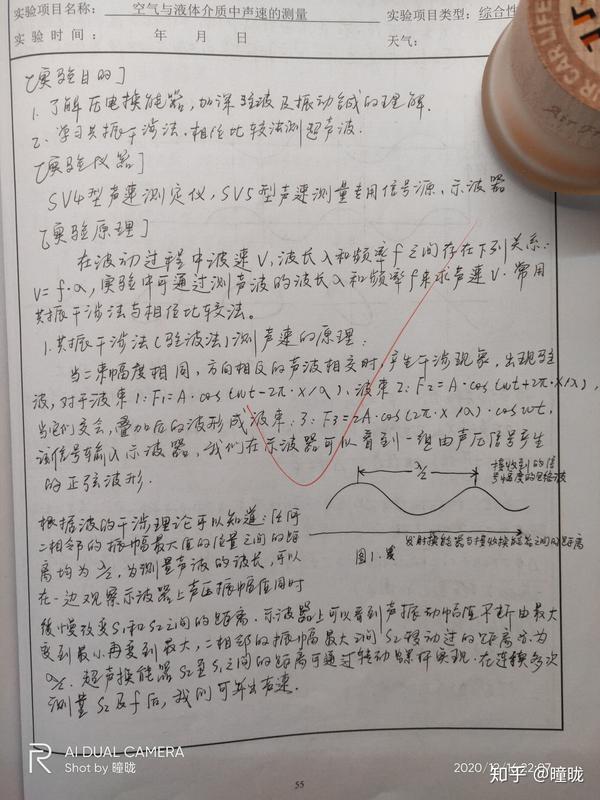 实验项目名称： 空气与液体介质中声速的测量 实验项目类型：综合性
实 验 时 间： 年 月 日 天气：
[实验目的]
1. 了解压电换能器，加深驻波及振动合成的理解.
2. 学习共振干涉法、相位比较法测超声波.
[实验仪器]
SV4型声速测定仪，SV5型声速测量专用信号源、示波器
[实验原理]
在波动过程中波速V，波长λ和频率f之间存在下列关系：
V=f·λ，实验中可通过测声波的波长λ和频率f来求声速V. 常用
共振干涉法与相位比较法。
1. 共振干涉法（驻波法）测声速的原理：
当二束幅度相同，方向相反的声波相交时，产生干涉现象，出现驻
波，对于波束1：F1=A·cos(wt-2π·X/λ)、波束2：F2=A·cos(wt+2π·X/λ)，
当它们交会，叠加后的波形成波束：3：F3=2A·cos(2π·X/λ)·cos wt，
该信号输入示波器，我们在示波器可以看到一组由声压信号产生
的正弦波形.
λ/2
接收到的信
号幅度的包络波
发射换能器与接收换能器之间的距离
图1.
根据波的干涉理论可以知道：任何
二相邻的振幅最大值的位置之间的距
离均为λ/2，为测量声波的波长，可以
在一边观察示波器上声压振幅值同时
缓慢改变S1和S2之间的距离. 示波器上可以看到声振动幅值不断由最大
变到最小再变到最大，二相邻的振幅最大之间S2移动过的距离亦为
λ/2. 超声换能器S2至S1之间的距离可通过转动螺杆实现. 在连续多次
测量S2及f后，我们可算出声速.
R
AI DUAL CAMERA
Shot by 曈昽
2020/12/16 22:07
知乎 @曈昽
55